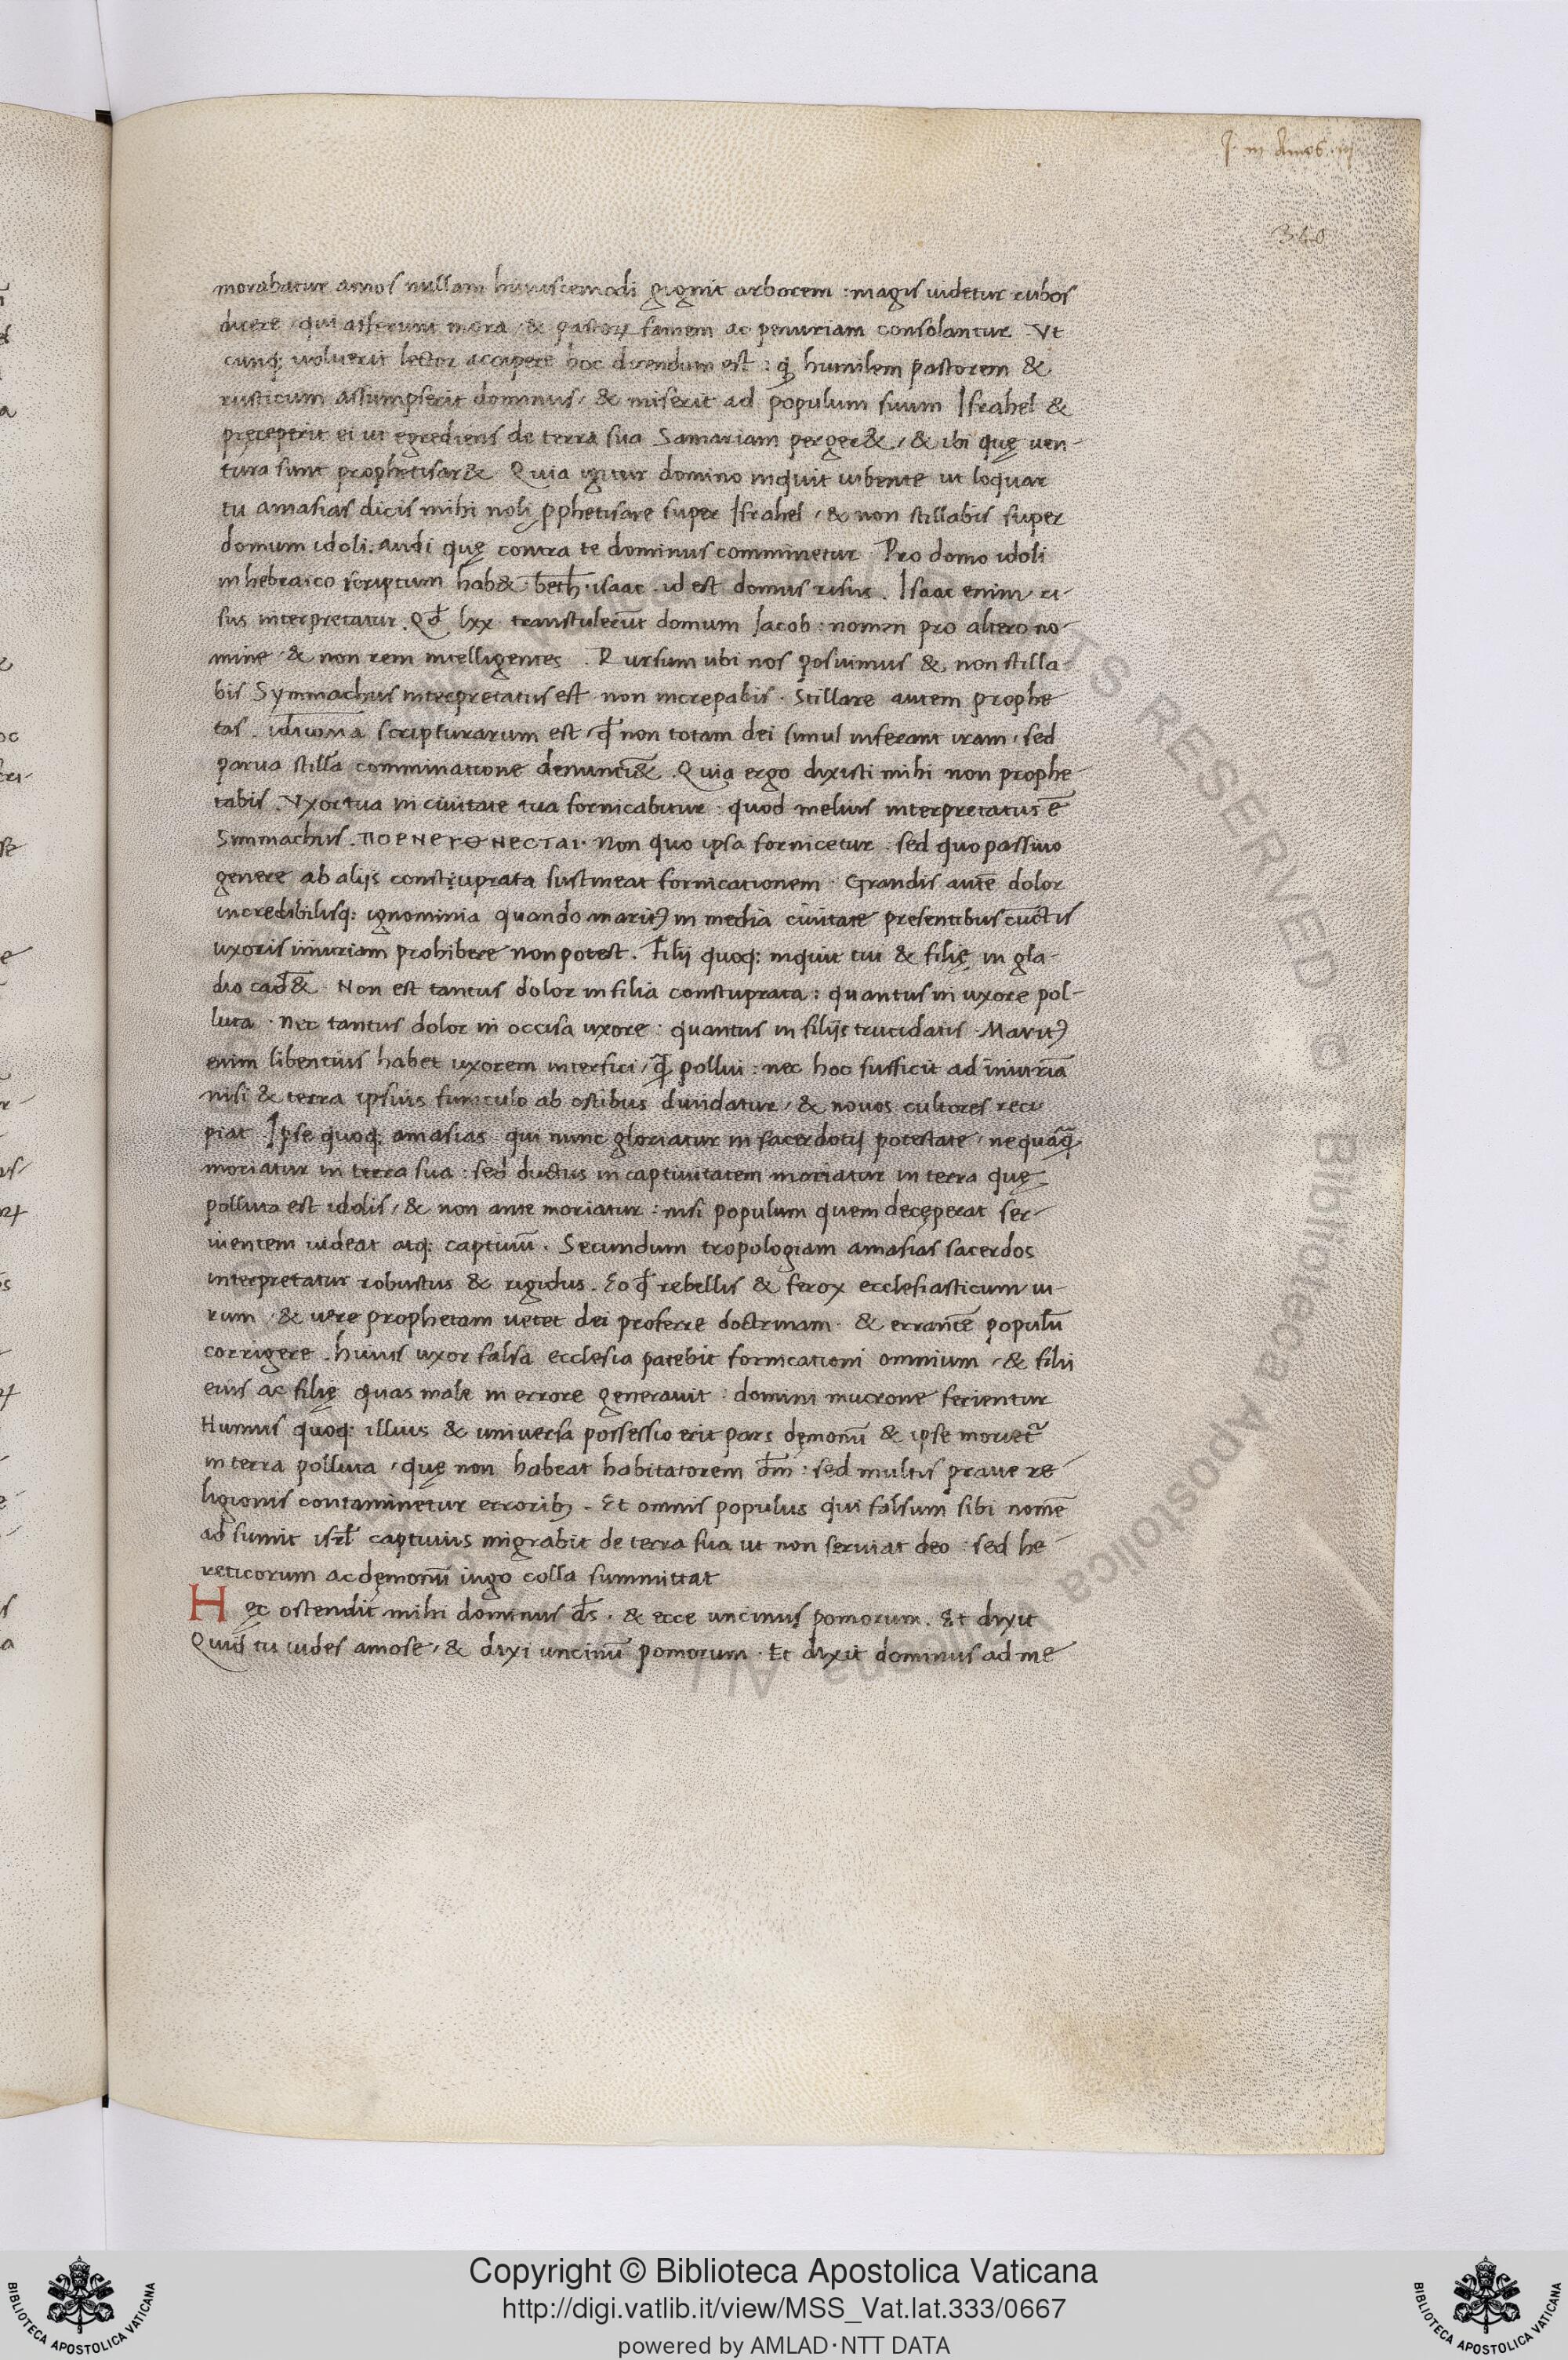 J. in Amos. iij
340
morabatur amos nullam huiuscemodi gignit arborem : magis uidetur rubos
dicere / qui afferunt mora / & pastoꝝ famem ac penuriam consolantur Vt
cunq; uoluerit lector accipere hoc dicendum est : ꝙ humilem pastorem &
rusticum assumpserit dominus / & miserit ad populum suum Israhel &
pręceperit ei ut egrediens de terra sua Samariam perger& / & ibi quę uen-
tura sunt prophetisar& Quia igitur domino inquit iubente ut loquar
tu amasias dicis mihi noli ꝓphetisare super Israhel / & non stillabis super
domum idoli : audi quę contra te dominus comminetur Pro domo idoli
in hebraico scriptum hab& . beth . isaac . id est domus risus . Isaac enim ri-
sus interpretatur . Qđ lxx transtulerūt domum Jacob : nomen pro altero no-
mine / & non rem intelligentes . Rursum ubi nos posuimus & non stilla-
bis Symmachus interpretatus est non increpabis . Stillare autem prophe-
tas . idioma scripturarum est / ꝙ non totam dei simul inferant iram / sed
parua stilla comminatione denunti& . Quia ergo dixisti mihi non prophe-
tabis . Vxor tua in ciuitate tua fornicabitur . quod melius interpretatus ē
Simmachus . ΠΟΕΝΕΓΘΗΕCΤΑΙ . Non quo ipsa fornicetur . sed quo passiuo
genere ab alijs constuprata sustineat fornicationem . Grandis autē dolor
incredibilisq; ignominia quando marit᷒ in media ciuitate presentibus cūctis
uxoris iniuriam prohibere non potest . Filij quoq; inquit tui & filię in gla-
dio cad& . Non est tantus dolor in filia constuprata : quantus in uxore pol-
luta . nec tantus dolor in occisa uxore : quantus in filijs trucidatis . Marit᷒
enim libentius habet uxorem interfici / ꝗ̄ pollui : nec hoc sufficit ad iniuriā
nisi & terra ipsius funiculo ab ostibus diuidatur / & nouos cultores reci
piat Ipse quoq; amasias qui nunc gloriatur in sacerdotij potestate / nequaꝗ̄
moriatur in terra sua : sed ductus in captiuitatem moriatur in terra quę
polluta est idolis / & non ante moriatur : nisi populum quem decęperat ser-
uientem uideat atq; captiuū . Secundum tropologiam amasias sacerdos
interpretatur robustus & rigidus . Eo ꝙ rebellis & ferox ecclesiasticum ui-
rum / & uere prophetam uetet dei proferre doctrinam . & errantē populū
corrigere . huius uxor falsa ecclesia patebit fornicationi omnium / & filii
eius ac filię quas male in errore generauit : domini mucrone ferientur
Humus quoq; illius & uniuersa possessio erit pars dęmonū & ipse moriet᷑
in terra polluta / quę non habeat habitatorem dm̄ : sed multis praue re-
ligionis contaminetur erroribꝫ . Et omnis populus qui falsum sibi nomē
adsumit isrl̄ captiuus migrabit de terra sua ut non seruiat deo : sed he-
reticorum ac dęmonū iugo colla summittat
Hęc ostendit mihi dominus ds̄ . & ecce uncinus pomorum . Et dixit
Quid tu uides amose / & dixi uncinū pomorum . Et dixit dominus ad me
Copyright © Biblioteca Apostolica Vaticana
http://digi.vatlib.it/view/MSS_Vat.lat.333/0667
powered by AMLAD·NTT DATA